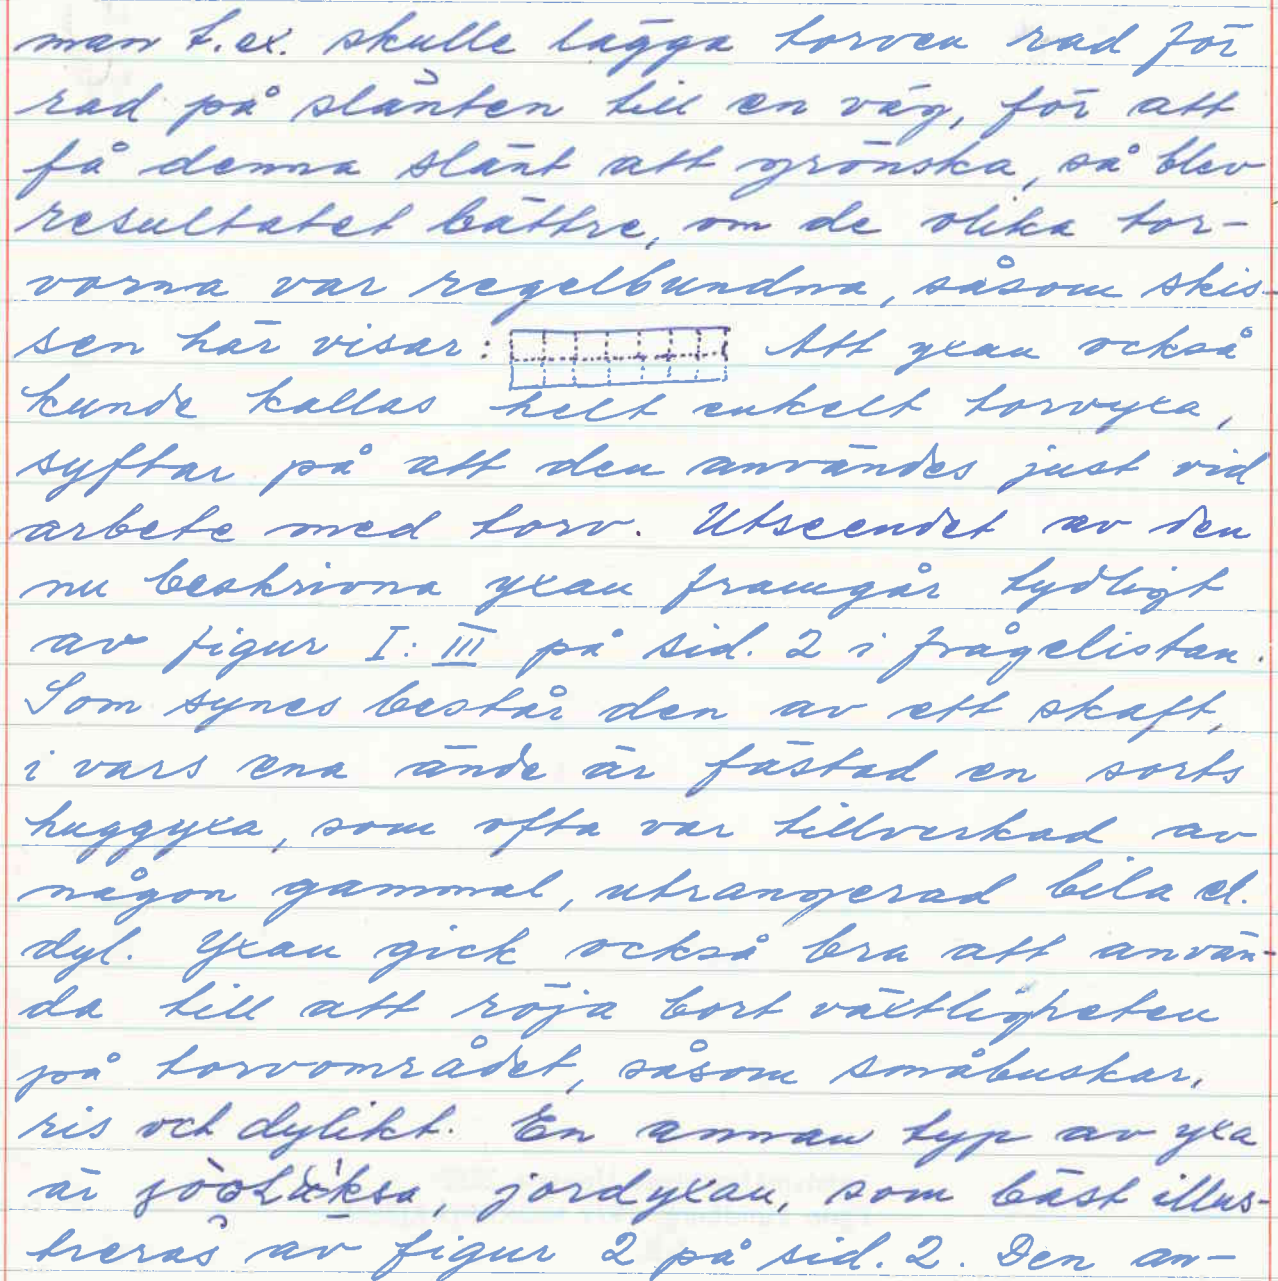 man t.ex. skulle lägga torven rad för
rad på slänten till en väg, för att
få denna slänt att grönska, så blev
resultatet bättre, om de olika tor-
vorna var regelbundna, såsom skis-
sen här visar: Att yxan också
kunde kallas helt enkelt torvyxa,
syftar på att den användes just vid
arbete med torv. Utseendet av den
nu beskrivna yxan framgår tydligt
av figur I: III på sid. 2 i frågelistan.
Som synes består den av ett skaft,
i vars ena ände är fästad en sorts
huggyxa, som ofta var tillverkad av
någon gammal, utrangerad bila el.
dyl. Yxan gick också bra att använ-
da till att röja bort växtligheten
på torvområdet, såsom småbuskar,
ris och dylikt. En annan typ av yxa
är jordyxan, som bäst illus-
treras av figur 2 på sid. 2. Den an-